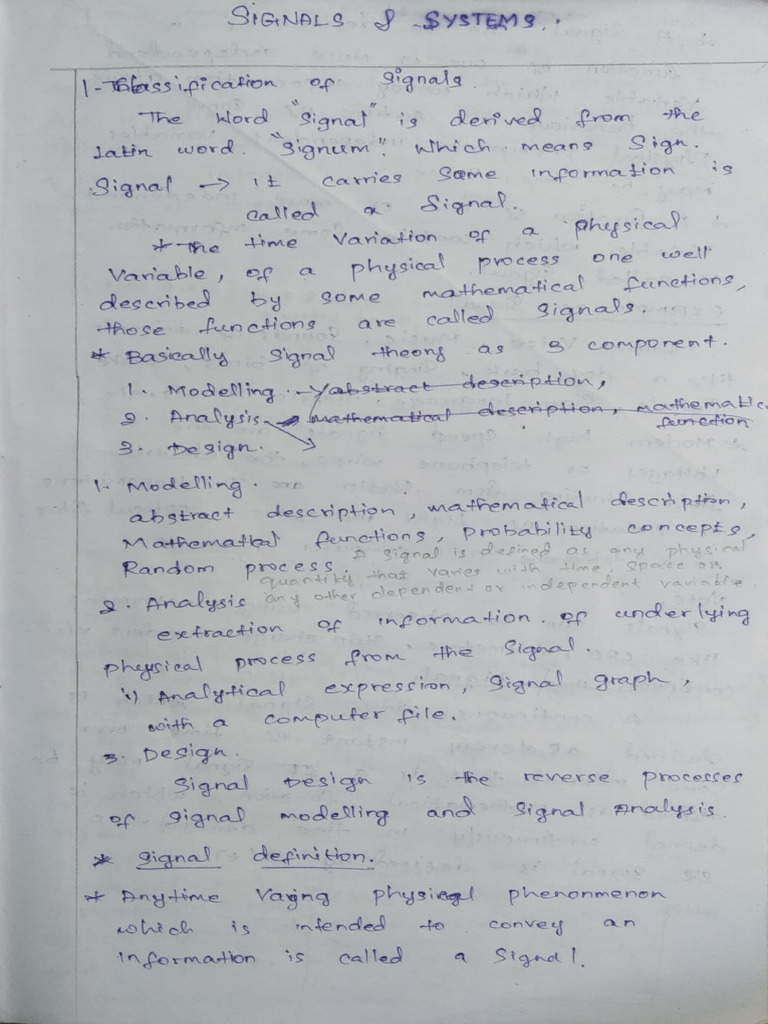 SIGNALS & SYSTEMS.
1- Classification of signals.
The word "signal" is derived from the
Latin word. "Signum". Which means Sign.
Signal → it carries some information is
called a Signal.
* The time variation of a physical
variable, of a physical process one well
described by some mathematical functions,
those functions are called signals.
* Basically signal theory as 3 component.
1. Modelling. abstract description,
2. Analysis → mathematical description, mathematic
function
3. Design.
1. Modelling.
abstract description, mathematical description,
Mathematical functions, probability concepts,
Random process.
A signal is defined as any physical
quantity that varies with time, space or
any other dependent or independent variable.
2. Analysis
extraction of information of underlying
physical process from the signal.
i) Analytical expression, signal graph,
with a computer file.
3. Design.
Signal Design is the reverse processes
of signal modelling and signal Analysis.
* Signal definition.
* Anytime Varing physical phenonmenon
which is intended to convey an
information is called a Signal.